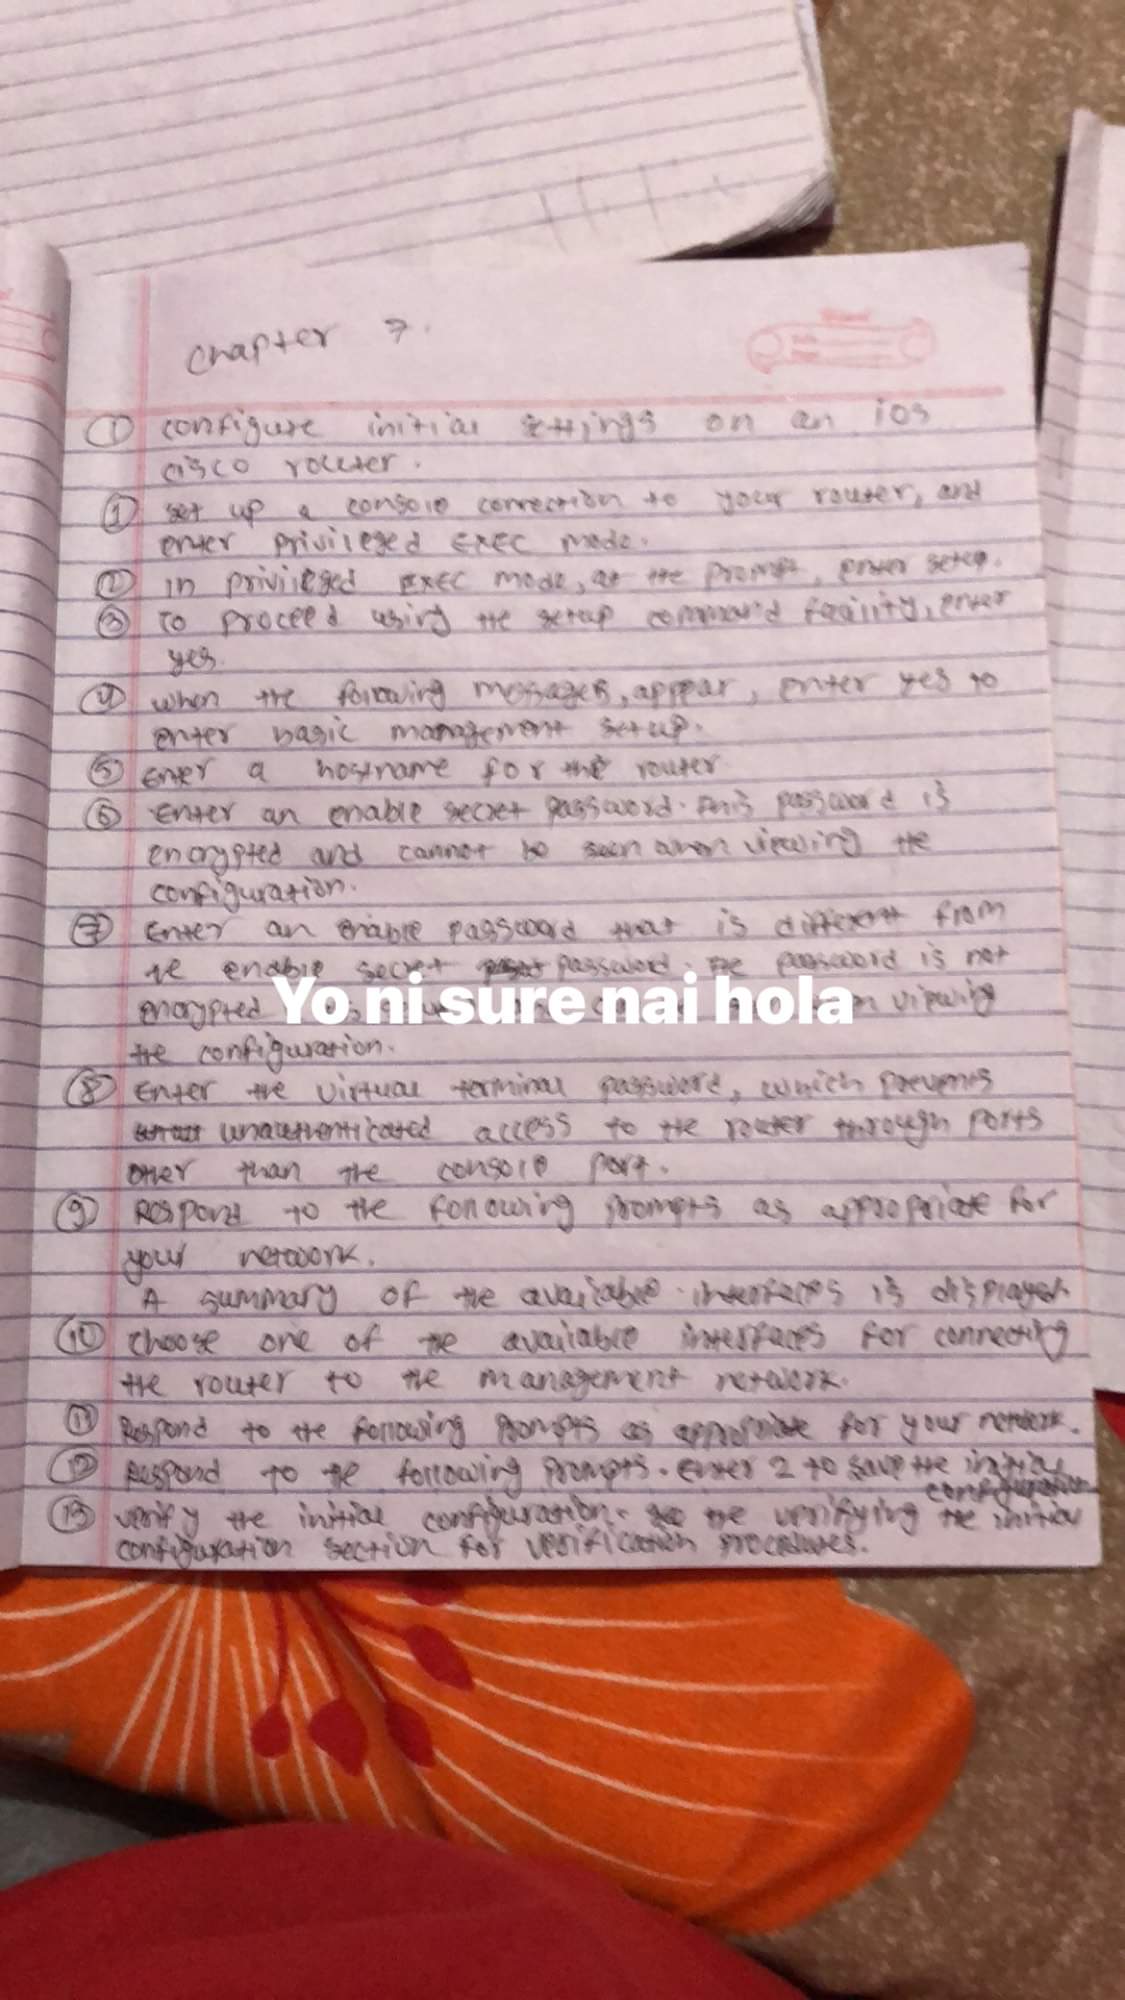 chapter 7.
① configure initial settings on an ios
cisco router.
① set up a console connection to your router, and
enter privileged EXEC mode.
② in privileged EXEC mode, at the prompt, enter setup.
③ To proceed using the setup command facility, enter
yes.
④ when the following messages, appear, enter yes to
enter basic management setup.
⑤ Enter a hostname for the router
⑥ Enter an enable secret password. This password is
encrypted and cannot be seen when viewing the
configuration.
⑦ Enter an enable password that is different from
the enable secret password. The password is not
encrypted
Yo ni sure nai hola
viwing
the configuration.
⑧ Enter the virtual terminal password, which prevents
unauthenticated access to the router through ports
other than the console port.
⑨ Respond to the following prompts as appropriate for
your network.
A summary of the available interfaces is displayed.
⑩ Choose one of the available interfaces for connecting
the router to the management network.
⑪ Respond to the following prompts as appropriate for your network.
⑫ Respond to the following prompts. Enter 2 to save the initial
configuration
⑬ verify the initial configuration. the verifying the initial
configuration section for verification procedures.